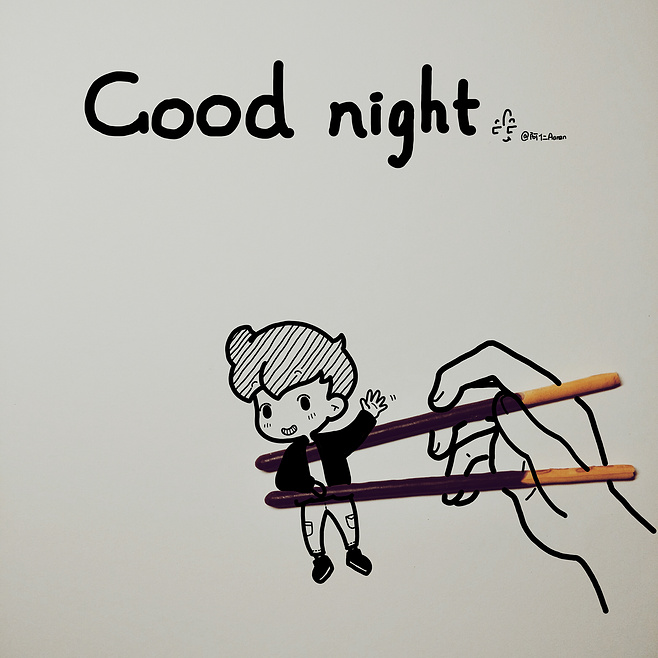 Good night
@阿仁_Aaron